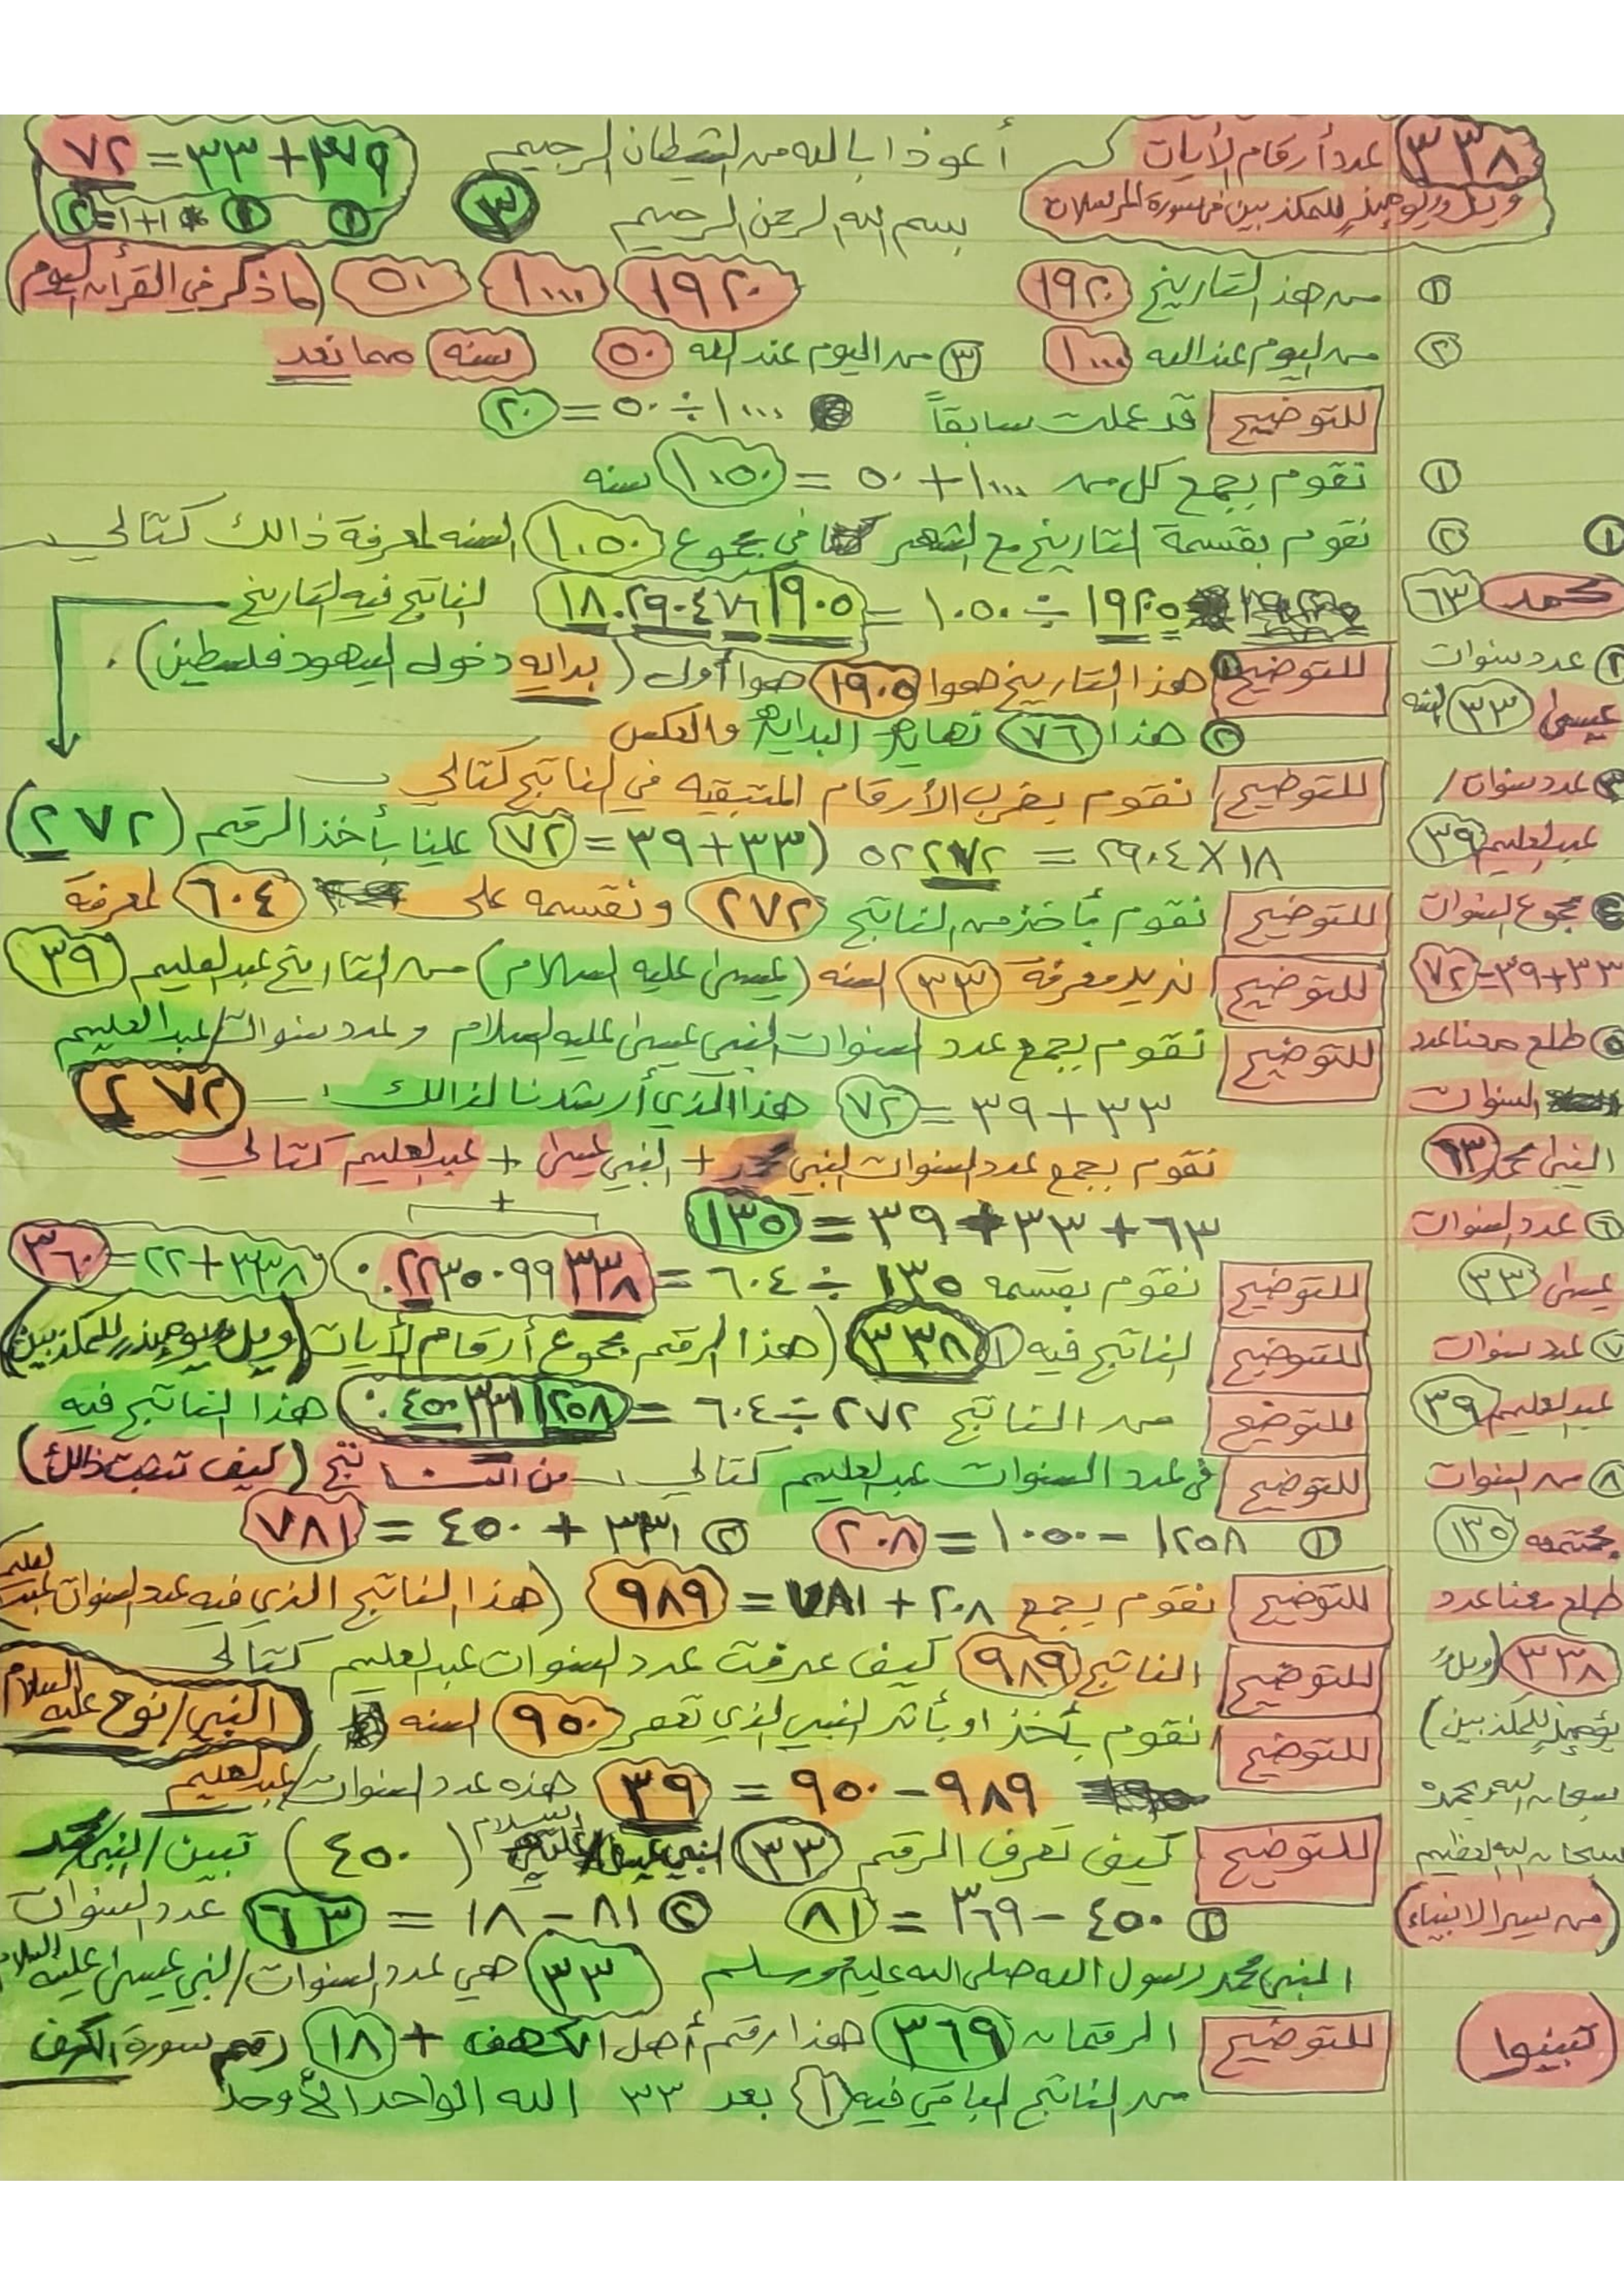 ٣٣٨ عدد أرقام الأيات أعوذ بالله من الشيطان الرجيم ٣٩+٣٣=٧٢
ويل يومئذ للمكذبين في سورة المرسلات بسم الله الرحمن الرحيم ٣ ١ ١ ١+١=٢
١ من هذ التاريخ ١٩٢٠ ١٩٢٠ ١٠٠٠ ٥٠ كما ذكر في القرأن اليوم
٢ من اليوم عند الله ١٠٠٠ ٣ من اليوم عند الله ٥٠ سنه مما تعد
للتوضيح قد عملت سابقاً ١٠٠٠÷٥٠=٢٠
١ نقوم بجمع كل من ١٠٠٠+٥٠=١٠٥٠ سنه
٢ نقوم بقسمة التاريخ مع الشهر في مجموع ١٠٥٠ السنه لمعرفة ذالك كتالي
١٩٢٠٥÷١٠٥٠=١٨.٢٩٠٤٧٦١٩٠٥ الناتج فيه التاريخ
للتوضيح ١ هذا التاريخ هوا ١٩٠٥ هوا أول (بدايه دخول اليهود فلسطين).
٢ هذا ٧٦ نهاية البداية والعكس
للتوضيح نقوم بضرب الأرقام المتبقيه في الناتج كتالي
١٨×٢٩٠٤=٥٢٢٧٢ (٣٣+٣٩=٧٢ علينا بأخذ الرقم (٢٧٢)
للتوضيح نقوم بأخذ من الناتج ٢٧٢ ونقسمه على ٦٠٤ لمعرفة
للتوضيح نريد معرفة ٣٣ السنه (عيسى عليه السلام) من التاريخ عبدالعليم ٣٩
للتوضيح نقوم بجمع عدد السنوات النبي عيسى عليه السلام وعدد سنوات/عبدالعليم
٣٣+٣٩=٧٢ هذا الذي أرشدنا لذالك ٢٧٢
نقوم بجمع عدد السنوات النبي محمد + النبي عيسى + عبدالعليم كتالي
+
٦٣+٣٣+٣٩=١٣٥
للتوضيح نقوم بقسمه ١٣٥÷٦٠٤=٠.٢٢٣٥٠٩٩٣٣٨ ٣٣٨+٢٢=٣٦٠
للتوضيح الناتج فيه ١ ٣٣٨ (هذا الرقم مجموع أرقام الأيات (ويل يومئذ للمكذبين)
للتوضيح من الناتج ٢٧٢÷٦٠٤=٠.٤٥٠٣٣١١٢٥٨ هذا الناتج فيه
للتوضيح في عدد السنوات عبدالعليم كتالي من الناتج (كيف تثبت ذالك)
١ ١٢٥٨-١٠٥٠=٢٠٨ ٢ ٣٣١+٤٥٠=٧٨١
للتوضيح نقوم بجمع ٢٠٨+٧٨١=٩٨٩ (هذا الناتج الذي فيه عدد السنوات عبدالعليم
للتوضيح الناتج ٩٨٩ كيف عرفت عدد السنوات عبدالعليم كتالي
للتوضيح نقوم بأخذ او بأثر النبي الذي تعمر ٩٥٠ السنه النبي/نوح عليه السلام
٩٨٩-٩٥٠=٣٩ هذه عدد السنوات/عبدالعليم
للتوضيح كيف تعرف الرقم ٣٣ النبي عيسى/عليه السلام (٤٥٠) تبين/النبي محمد
١ ٤٥٠-٣٦٩=٨١ ٢ ٨١-١٨=٦٣ عدد السنوات
النبي محمد رسول الله صلى الله عليه وسلم ٣٣ هي عدد السنوات/النبي عيسى عليه السلام
للتوضيح الرقمان ٣٦٩ هذا رقم أهل الكهف + ١٨ رقم سورة الكهف
من الناتج الباقي فيه ١ بعد ٣٣ الله الواحد الأحد
١
محمد ٦٣
٢ عدد سنوات
عيسى ٣٣ السنه
٣ عدد سنوات/
عبدالعليم ٣٩
٤ مجموع السنوات
٣٣+٣٩=٧٢
٥ طلع معنا عدد
السنوات
النبي محمد ٦٣
٦ عدد السنوات
عيسى ٣٣
٧ عدد سنوات
عبدالعليم ٣٩
٨ من السنوات
مجتمعه ١٣٥
طلع معنا عدد
٣٣٨ (ويل
يومئذ للمكذبين)
سبحان الله وبحمده
سبحان الله العظيم
(من سير الانبياء)
(تبينوا)